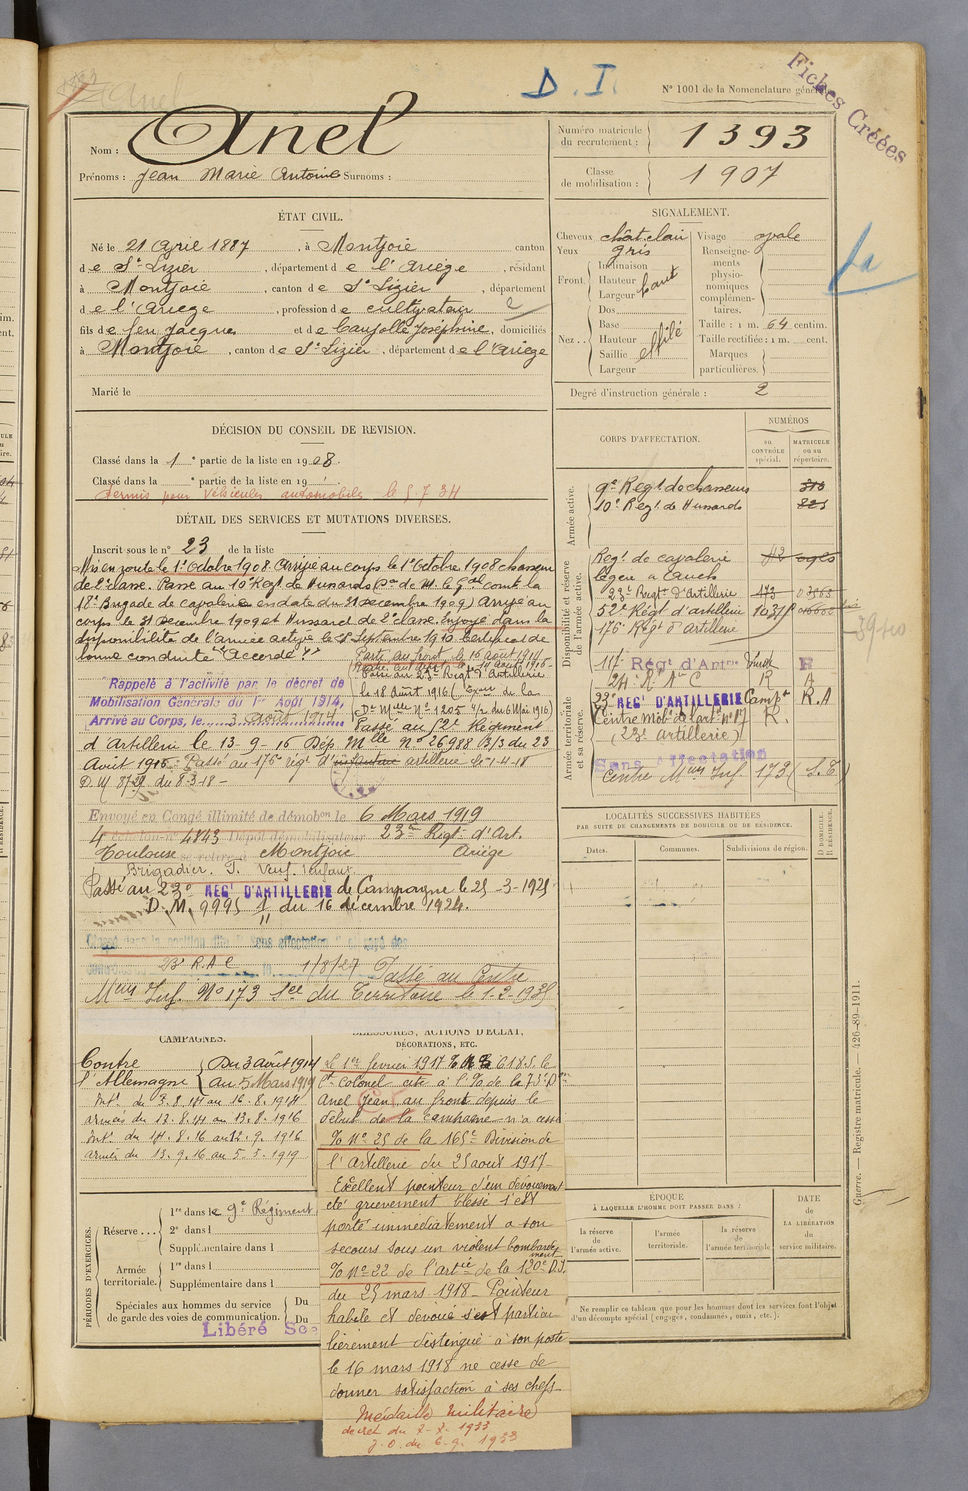 D. I.
N° 1001 de la Nomenclature
Fiches Créées
Nom : Anel
Prénoms : Jean Marie Antoine Surnoms :
Numéro matricule du recrutement : 1393
Classe de mobilisation : 1907
ÉTAT CIVIL.
Né le 21 Avril 1887, à Montjoie canton
de St Lizier, département de l'Ariège, résidant
à Montjoie, canton de St Lizier, département
de l'Ariège, profession de cultivateur
fils de feu Jacques et de Caujolle Joséphine, domiciliés
à Montjoie, canton de St Lizier, département de l'Ariège
Marié le
SIGNALEMENT.
Cheveux chât. clair Visage ovale
Yeux gris
Renseignements physionomiques complémentaires.
Front. Inclinaison
Hauteur haut
Largeur
Nez.. Dos
Base
Hauteur effilé
Saillie
Largeur
Taille : 1 m. 64 centim.
Taille rectifiée : 1 m. cent.
Marques particulières.
Degré d'instruction générale : 2
DÉCISION DU CONSEIL DE REVISION.
Classé dans la 1e partie de la liste en 1908.
Classé dans la e partie de la liste en 19
Permis pour véhicules automobiles le 5 7 34
DÉTAIL DES SERVICES ET MUTATIONS DIVERSES.
Inscrit sous le n° 23 de la liste
Mis en route le 1er octobre 1908. Arrivé au corps le 1er octobre 1908 chasseur
de 2e classe. Passé au 10e Régt de Hussards (on de M. le Gal comt la
18e Brigade de cavalerie en date du 21 Décembre 1909) Arrivé au
corps le 31 Décembre 1909 et Hussard de 2e classe. Envoyé dans la
disponibilité de l'armée active le 25 Septembre 1910. Certificat de
bonne conduite "Accordé".
Parti au front le 16 août 1914
Passé au 23e Régt d'Artillerie
le 18 Août 1916 (Exon de la
Dn Mlle N° 1205 4/2 du 6 Mai 1916)
Rappelé à l'activité par le décret de
Mobilisation Générale du 1er Août 1914,
Arrivé au Corps, le 3 août 1914
Passé au 52e Régiment
d'Artillerie le 13-9-16 Dép. Mlle N° 26988 B/3 du 23
Août 1916. Passé au 176e régt d'infanterie artillerie le 1-4-18
D. M du 8-3-18
Envoyé en Congé illimité de démobon le 6 Mars 1919
4e échelon n° 4843 Dépôt démobilisateur 23me Régt d'Art.
Toulouse se retire à Montjoie Ariège
Brigadier.
Passé au 23e REGt D'ARTILLERIE de Campagne le 25-3-1925
D. M. 9995 1/11 du 16 décembre 1924.
Classé dans la position dite "Sans affectation" et rayé des
contrôles du 23e R.A.C. le 1/8/27 Passé au Centre
Mom Inf. N° 173 See du Territoire le 1-2-1935
CORPS D'AFFECTATION.
NUMÉROS
au CONTRÔLE spécial.
MATRICULE ou au répertoire.
Armée active.
9e Régt de chasseurs
10e Régt de Hussards
Disponibilité et réserve de l'armée active.
Régt de cavalerie
légère à Auch
23e Régt d'Artillerie 473
52e Régt d'artillerie 1037
176e Régt d'artillerie
Armée territoriale et sa réserve.
117e Régt d'Artie lourde R
24e R A C R A
23e REGt D'ARTILLERIE Campe R.A
Centre Mob. de l'art. n° 17 R.
(23e artillerie)
Sans affectation
Centre Mom Inf. 173 (S.T)
LOCALITÉS SUCCESSIVES HABITÉES
PAR SUITE DE CHANGEMENTS DE DOMICILE OU DE RÉSIDENCE.
Dates. Communes. Subdivisions de région.
D DOMICILE. R RÉSIDENCE.
CAMPAGNES.
Contre l'Allemagne { Du 3 Août 1914
au 5 Mars 1919
Int. du 3.8.14 au 16.8.1914
armées du 17.8.14 au 13.8.1916
Int. du 14.8.16 au 12.9.1916
armées du 13.9.16 au 5.3.1919
BLESSURES, ACTIONS D'ÉCLAT, DÉCORATIONS, ETC.
Le 1er février 1917 le
Lt Colonel cité à l'O. de la 73e Don
Anel Jean au front depuis le
début de la campagne n'a cessé
O/ N° 25 de la 165e Division de
l'artillerie du 25 août 1917
Excellent pointeur d'un dévouement
été grièvement blessé s'est
porté immédiatement à son
secours sous un violent bombardement
O/ N° 22 de l'artie de la 120e D.I.
du 25 mars 1918 - Pointeur
habile et dévoué s'est particulièrement
distingué à son poste
le 16 mars 1918 ne cesse de
donner satisfaction à ses chefs
Médaille militaire
J.O. du 6-9-1933
PÉRIODES D'EXERCICES.
Réserve... 1re dans le 9e Régiment
2e dans l
Supplémentaire dans l
Armée territoriale. 1re dans l
Supplémentaire dans l
Spéciales aux hommes du service de garde des voies de communication. Du
Du
Libéré
ÉPOQUE
À LAQUELLE L'HOMME DOIT PASSER DANS :
la réserve de l'armée active. l'armée territoriale. la réserve de l'armée territoriale
DATE de LA LIBÉRATION du service militaire.
Ne remplir ce tableau que pour les hommes dont les services font l'objet
d'un décompte spécial (engagés, condamnés, omis, etc.).
Guerre. — Registre matricule. — 426-89-1911.